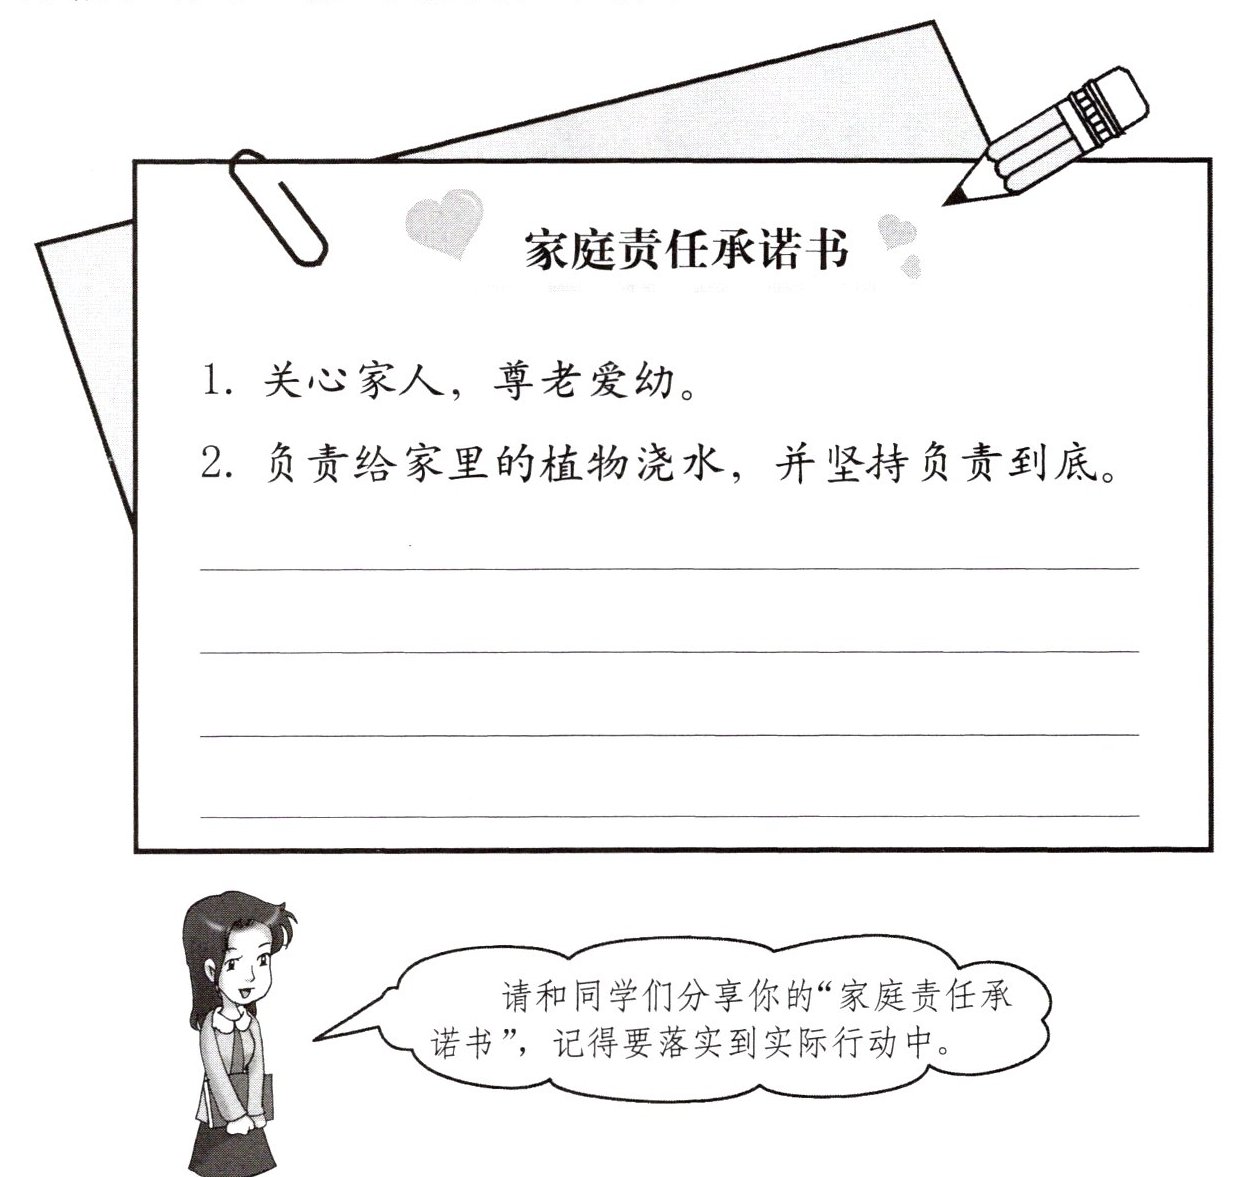 家庭责任承诺书
1. 关心家人，尊老爱幼。
2. 负责给家里的植物浇水，并坚持负责到底。
请和同学们分享你的“家庭责任承
诺书”，记得要落实到实际行动中。